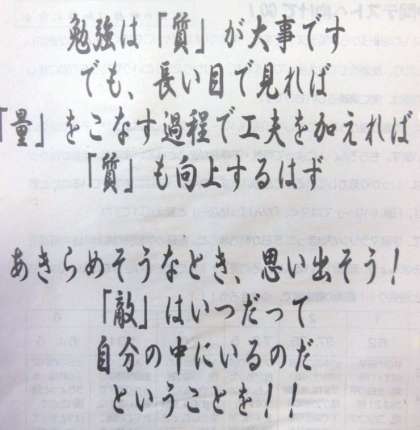 勉強は「質」が大事です
でも、長い目で見れば
「量」をこなす過程で工夫を加えれば
「質」も向上するはず
あきらめそうなとき、思い出そう！
「敵」はいつだって
自分の中にいるのだ
ということを！！